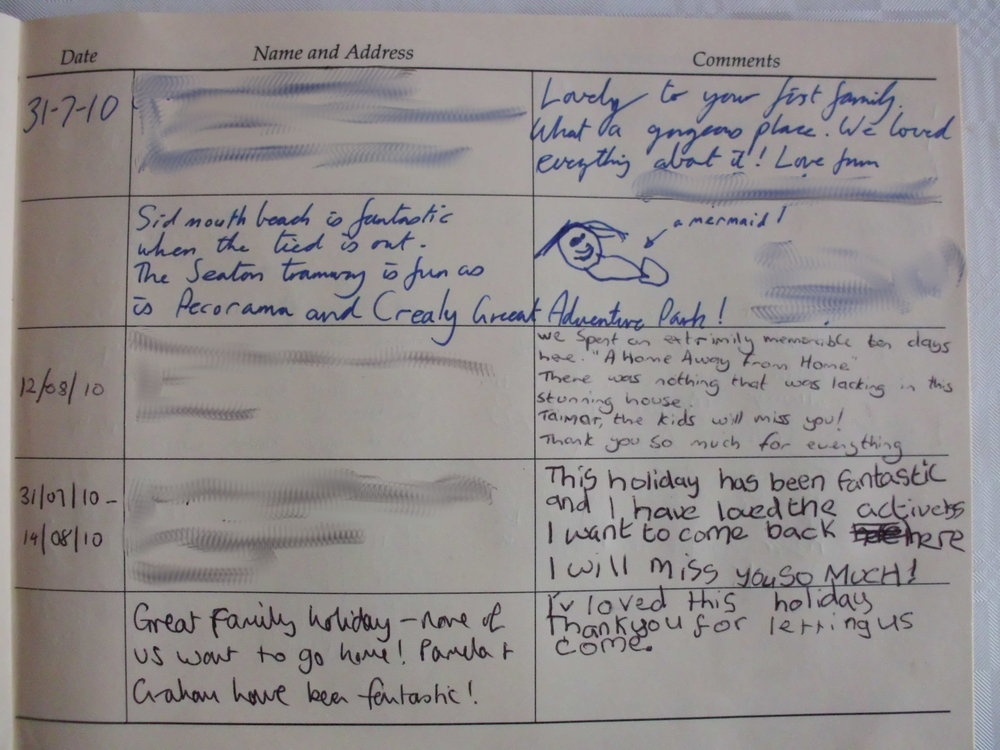 Date Name and Address Comments
31-7-10
Lovely to your first family.
What a gorgeous place. We loved
everything about it! Love from
Sidmouth beach is fantastic
when the tied is out.
The Seaton tramway is fun as
is Pecorama and Crealy Greeat Adventure Park!
a mermaid!
12/08/10
we Spent an extrimily memorible ten days
here. "A Home Away From Home"
There was nothing that was lacking in this
stunning house.
Taimar, the kids will miss you!
Thank you so much for everything
31/07/10 -
14/08/10
This holiday has been fantastic
and I have loved the activers
I want to come back here
I will miss you SO MUCH!
Great Family holiday - none of
us want to go home! Pamela +
Graham have been fantastic!
I'v loved this holiday
Thankyou for letting us
come.